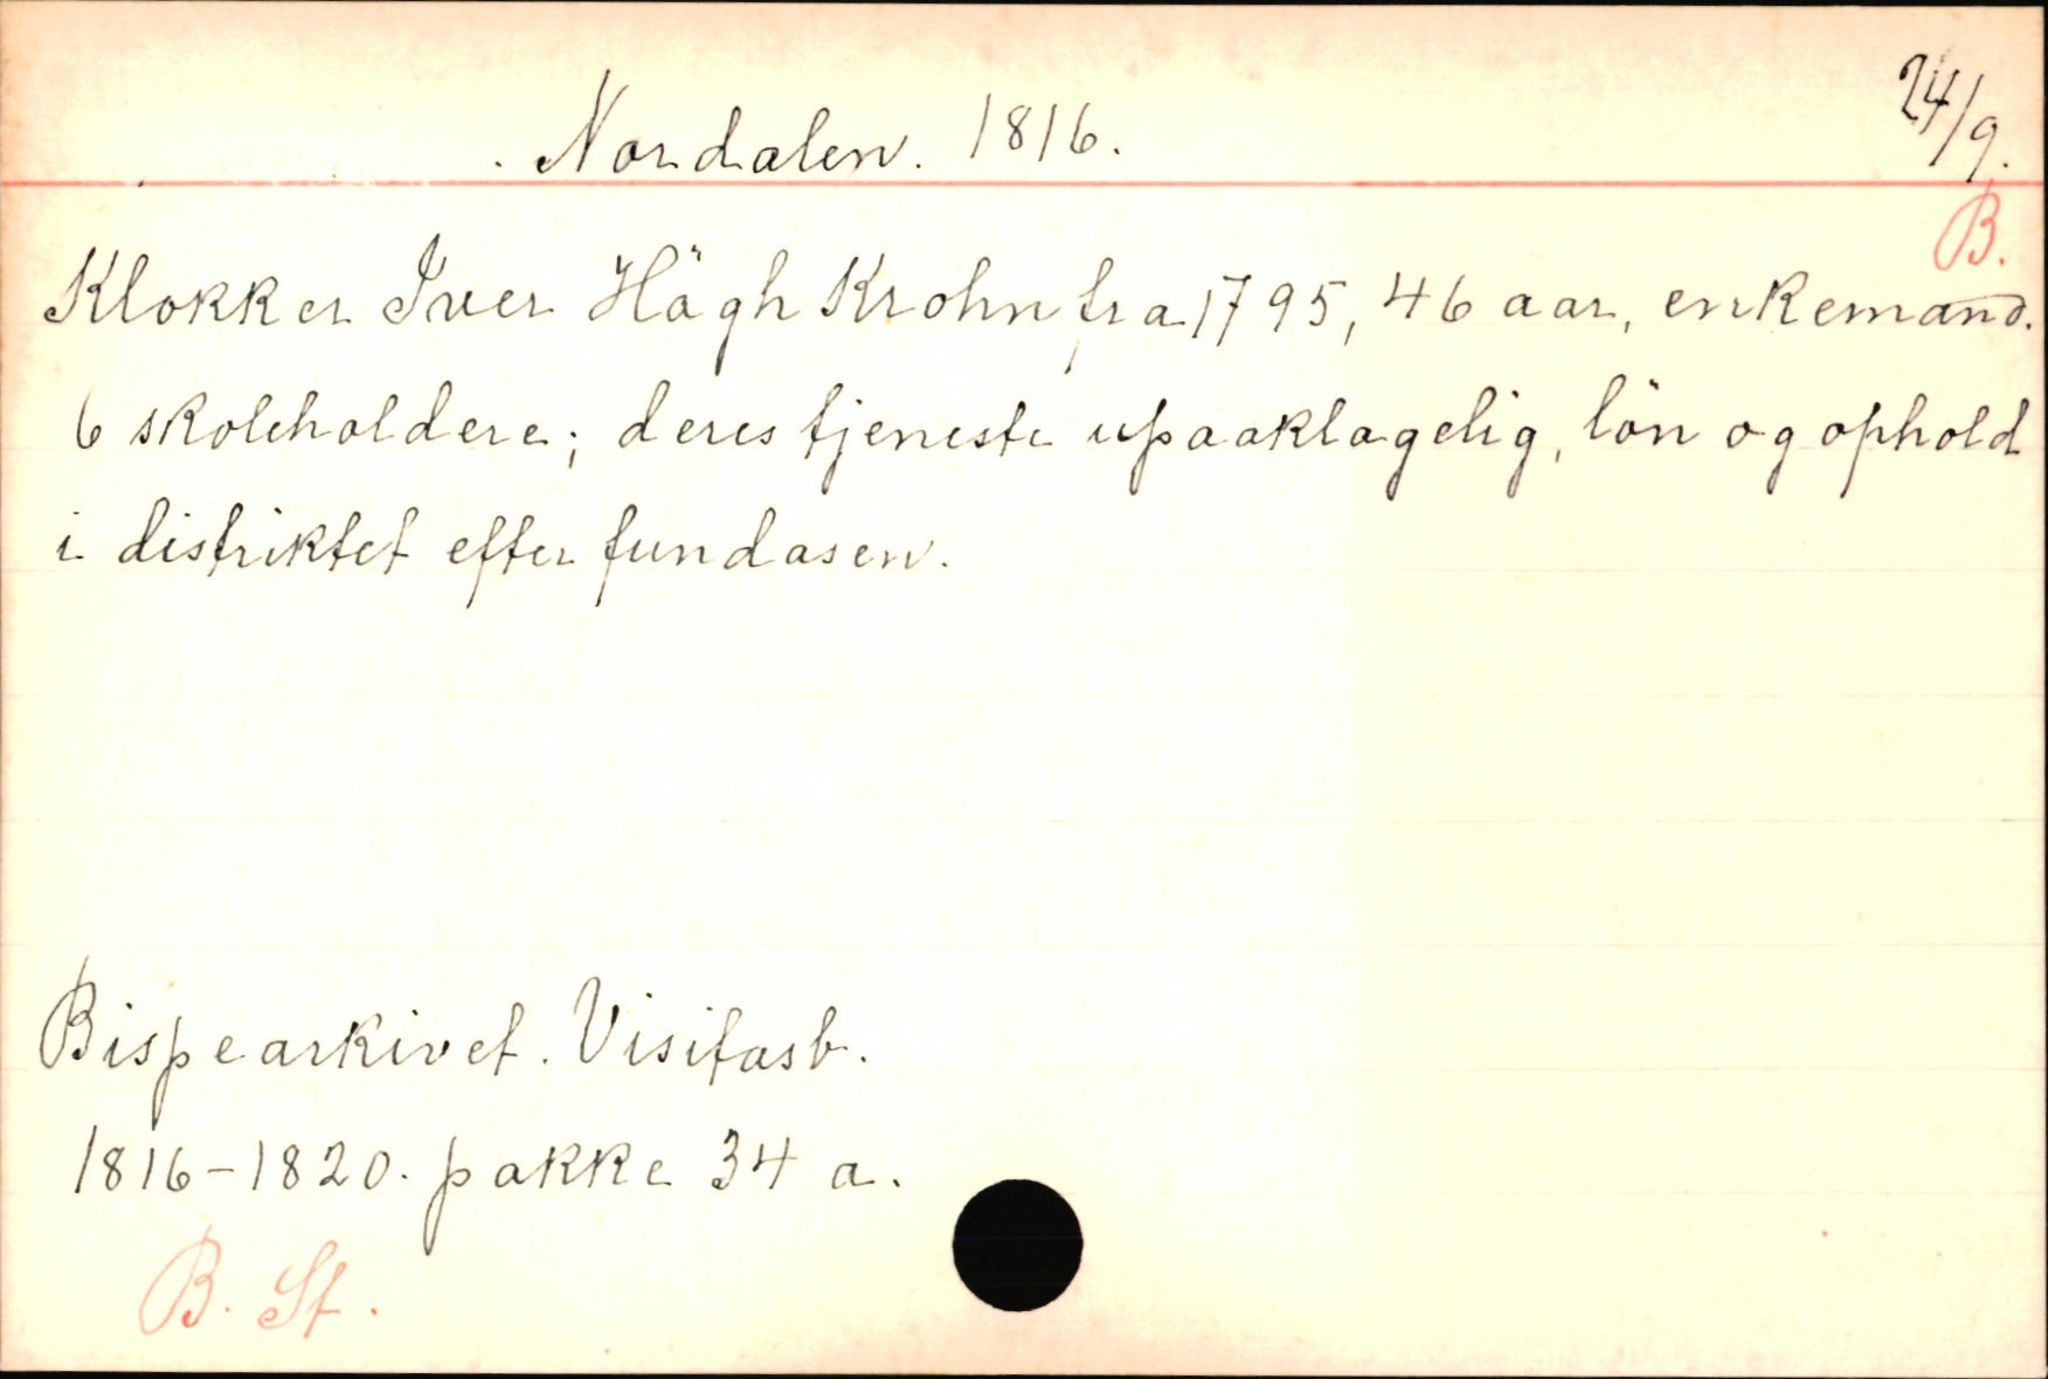 Nordalen. 1816. 24/9.
B.
Klokker Iver Högh Krohn fra 1795, 46 aar, enkemand.
6 skoleholdere; deres tjeneste upaaklagelig, lön og ophold
i distriktet efter fundasen.
Bispearkivet. Visitasb.
1816-1820. pakke 34 a.
B. St.